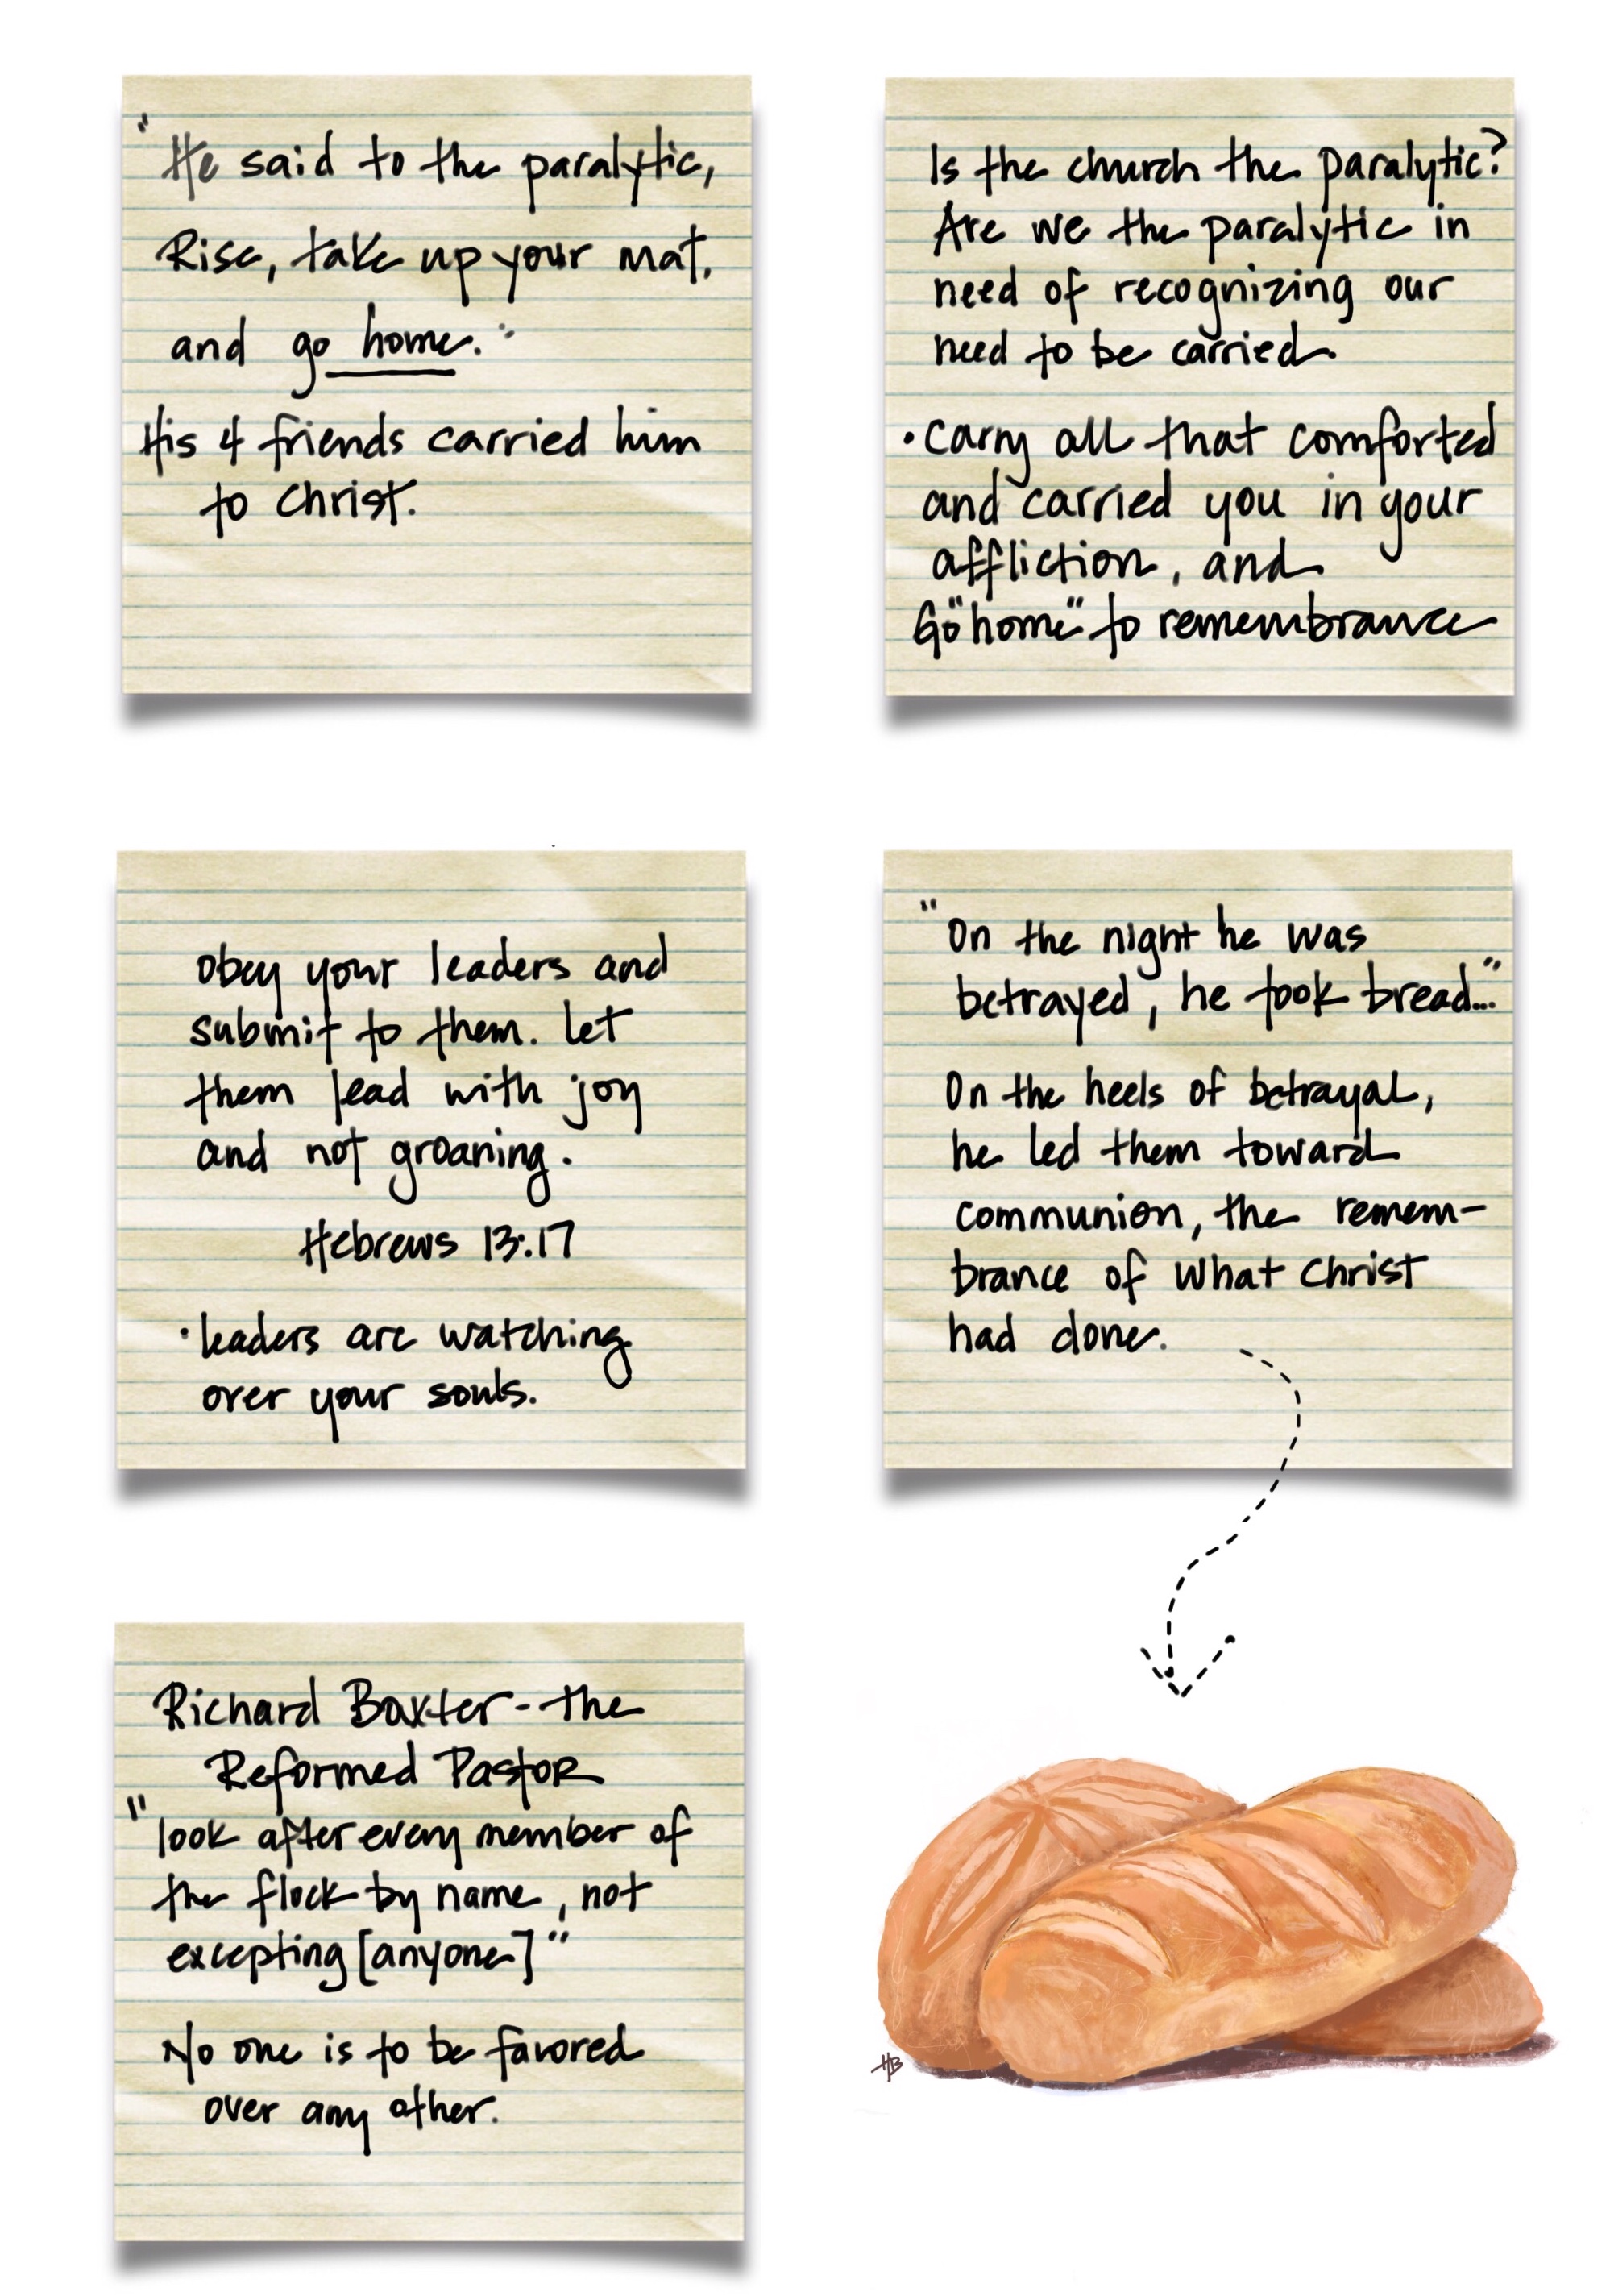 "He said to the paralytic,
Rise, take up your mat,
and go home."
His 4 friends carried him
to Christ.
Is the church the paralytic?
Are we the paralytic in
need of recognizing our
need to be carried.
• Carry all that comforted
and carried you in your
affliction, and
Go "home" to remembrance
Obey your leaders and
submit to them. Let
them lead with joy
and not groaning.
Hebrews 13:17
• Leaders are watching
over your souls.
"On the night he was
betrayed, he took bread..."
On the heels of betrayal,
he led them toward
communion, the remem-
brance of what Christ
had done.
Richard Baxter - the
Reformed Pastor
"look after every member of
the flock by name, not
excepting [anyone]"
No one is to be favored
over any other.
HB